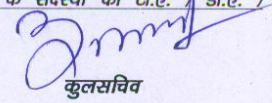 के सदस्यों को टी.ए. / डी.ए. /
कुलसचिव